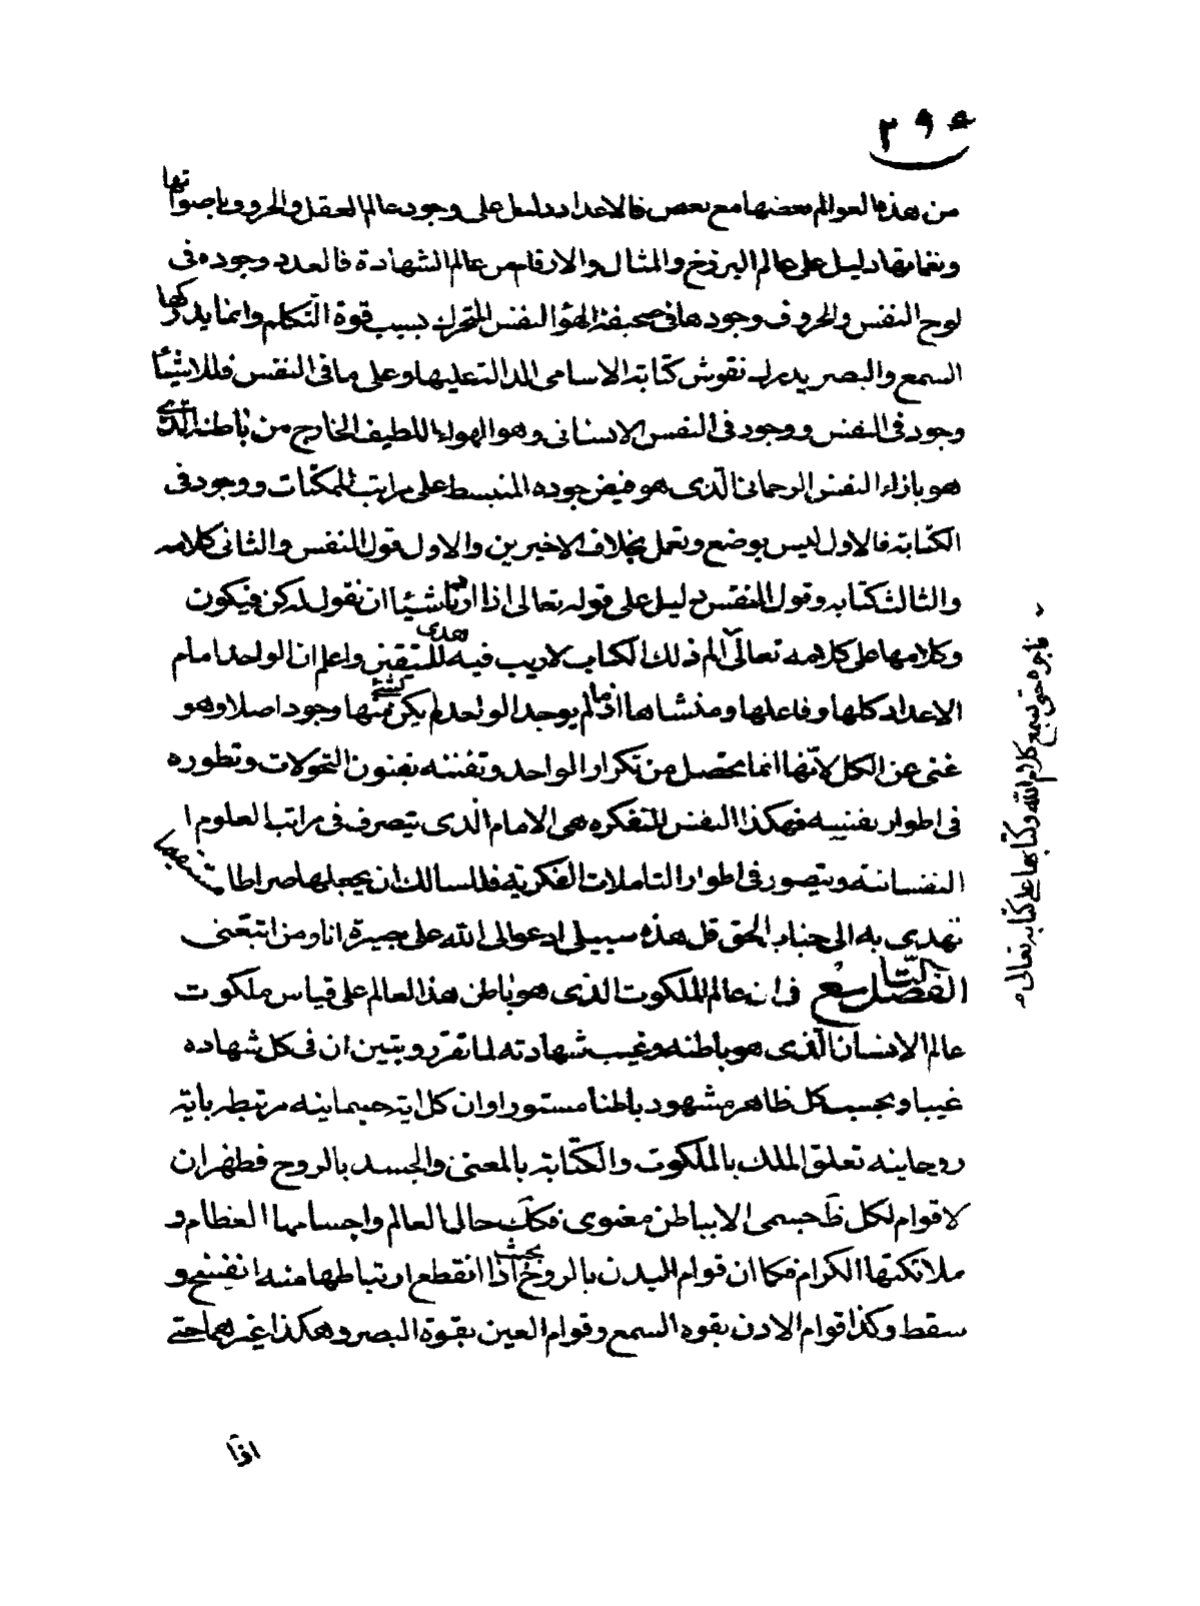 ٢٩٥
من هذه العوالم بعضها مع بعض فالاعداد دليل على وجود عالم العقل والحروف باصواتها
ونغماتها دليل على عالم البرزخ والمثال والارقام من عالم الشهادة فالعدد وجوده فى
لوح النفس والحروف وجودها فى صحيفة الهوا النفس المتحرك بسبب قوة التكلم وانما يدركها
السمع والبصر يدرك نقوش كتابة الاسامى الدالة عليها وعلى ما فى النفس فللاشياء
وجود فى النفس ووجود فى النفس الانسانى وهو الهواء اللطيف الخارج من باطنه الذى
هو بازاء النفس الرحمانى الذى هو فيض جوده المنبسط على مراتب الممكنات ووجود فى
الكتابة فالاول ليس بوضع وتعمل بخلاف الاخيرين والاول قول النفس والثانى كلامه
والثالث كتابه وقول النفس دليل على قوله تعالى اذا اردنا شيئا ان نقول له كن فيكون
وكلامها على كلامه تعالى الم ذلك الكتاب لاريب فيه هدى للمتقين واعلم ان الواحد امام
الاعداد كلها وفاعلها ومنشاها اذ ما لم يوجد الواحد لم يكن لشئ منها وجود اصلا وهو
غنى عن الكل لانها انما يحصل من تكرار الواحد وتفننه بفنون التحولات وتطوره
فى اطوار نفسه فهكذا النفس المتفكره هى الامام الذى يتصرف فى مراتب العلوم ا
النفسانية ويتصور فى اطوار التاملات الفكرية فللسالك ان يجعلها صراطا مستقيما
تهدى به الى جناب الحق قل هذه سبيلى ادعوا الى الله على بصيرة انا ومن اتبعنى
الفصل التاسع فى ان عالم الملكوت الذى هو باطن هذا العالم على قياس ملكوت
عالم الانسان الذى هو باطنه وغيب شهادته لما تقرر وتبين ان فى كل شهاده
غيبا وبحسب كل ظاهر مشهود باطنا مستورا وان كل اية جسمانيه مرتبطه باية
روحانيه تعلق الملك بالملكوت والكتابة بالمعنى والجسد بالروح فظهر ان
لا قوام لكل ظ حسمى الا بباطن معنوى فكك حال العالم واجسامها العظام و
ملائكتها الكرام فكما ان قوام البدن بالروح بحيث اذا انقطع ارتباطها منه انفسخ و
سقط وكذا قوام الاذن بقوه السمع وقوام العين بقوة البصر وهكذا غيرهما حتى
اذا
فاجره حتى يسمع كلام الله وكتابها على كتابه تعالى